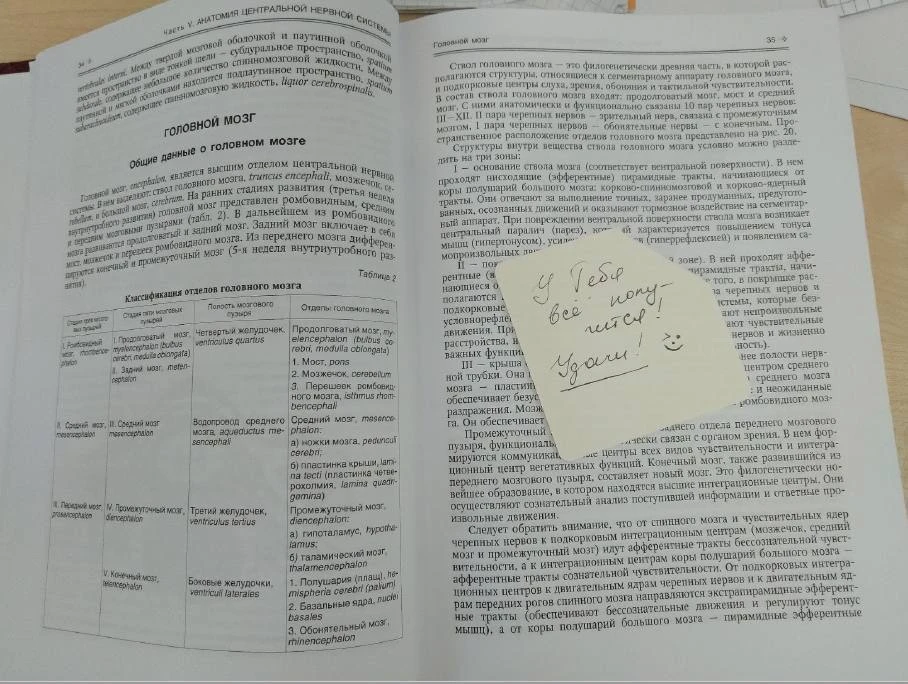 34 ❖ Часть V. АНАТОМИЯ ЦЕНТРАЛЬНОЙ НЕРВНОЙ СИСТЕМЫ
vertebrales interni. Между твердой мозговой оболочкой и паутинной оболочкой
имеется пространство в виде тонкой щели — субдуральное пространство, spatium
subdurale, содержащее небольшое количество спинномозговой жидкости. Между
паутинной и мягкой оболочками находится подпаутинное пространство, spatium
subarachnoideum, содержащее спинномозговую жидкость, liquor cerebrospinalis.
ГОЛОВНОЙ МОЗГ
Общие данные о головном мозге
Головной мозг, encephalon, является высшим отделом центральной нервной
системы. В нем выделяют: ствол головного мозга, truncus encephali, мозжечок, ce-
rebellum, и большой мозг, cerebrum. На ранних стадиях развития (третья неделя
внутриутробного развития) головной мозг представлен ромбовидным, средним
и передним мозговыми пузырями (табл. 2). В дальнейшем из ромбовидного
мозга развиваются продолговатый и задний мозг. Задний мозг включает в себя
мост, мозжечок и перешеек ромбовидного мозга. Из переднего мозга дифферен-
цируются конечный и промежуточный мозг (5-я неделя внутриутробного раз-
вития).
Таблица 2
Классификация отделов головного мозга
Стадия трех мозго-
вых пузырей
Стадия пяти мозговых
пузырей
Полость мозгового
пузыря
Отделы головного мозга
I. Ромбовидный
мозг, rhombence-
phalon
I. Продолговатый мозг,
myelencephalon (bulbus
cerebri, medulla oblongata)
II. Задний мозг, meten-
cephalon
Четвертый желудочек,
ventriculus quartus
Продолговатый мозг, my-
elencephalon (bulbus ce-
rebri, medulla oblongata)
1. Мост, pons
2. Мозжечок, cerebellum
3. Перешеек ромбовид-
ного мозга, isthmus rhom-
bencephali
II. Средний мозг,
mesencephalon
III. Средний мозг
mesencephalon
Водопровод среднего
мозга, aqueductus me-
sencephali
Средний мозг, mesence-
phalon:
а) ножки мозга, pedunculi
cerebri;
б) пластинка крыши, lami-
na tecti (пластинка четве-
рохолмия, lamina quadri-
gemina)
III. Передний мозг,
prosencephalon
IV. Промежуточный мозг,
diencephalon
Третий желудочек,
ventriculus tertius
Промежуточный мозг,
diencephalon:
а) гипоталамус, hypotha-
lamus;
б) таламический мозг,
thalamencephalon
V. Конечный мозг,
telencephalon
Боковые желудочки,
ventriculi laterales
1. Полушария (плащ), he-
mispheria cerebri (pallium)
2. Базальные ядра, nuclei
basales
3. Обонятельный мозг,
rhinencephalon
Головной мозг 35 ❖
Ствол головного мозга — это филогенетически древняя часть, в которой рас-
полагаются структуры, относящиеся к сегментарному аппарату головного мозга,
и подкорковые центры слуха, зрения, обоняния и тактильной чувствительности.
В состав ствола головного мозга входят: продолговатый мозг, мост и средний
мозг. С ними анатомически и функционально связаны 10 пар черепных нервов:
III–XII. II пара черепных нервов — зрительный нерв, связана с промежуточным
мозгом, I пара черепных нервов — обонятельные нервы — с конечным. Про-
странственное расположение отделов головного мозга представлено на рис. 20.
Структуры внутри вещества ствола головного мозга условно можно разде-
лить на три зоны:
I — основание ствола мозга (соответствует вентральной поверхности). В нем
проходят нисходящие (эфферентные) пирамидные тракты, начинающиеся от
коры полушарий большого мозга: корково-спинномозговой и корково-ядерный
тракты. Они отвечают за выполнение точных, заранее продуманных, предугото-
ванных, осознанных движений и оказывают тормозное воздействие на сегментар-
ный аппарат. При повреждении вентральной поверхности ствола мозга возникает
центральный паралич (парез), который характеризуется повышением тонуса
мышц (гипертонусом), усиле в (гиперрефлексией) и появлением са-
мопроизвольных дв
II — пок зоне). В ней проходят аффе-
рентные (в ирамидные тракты, начи-
нающиеся о того, в покрышке рас-
полагаются а черепных нервов и
подкорковые истемы, которые без-
условнорефле ют непроизвольные
движения. При ают чувствительные
расстройства, н нервов и жизненно
важных функци ность).
III — крыша нее полости нерв-
ной трубки. Она центром среднего
мозга — пластин среднего мозга
обеспечивает безус и неожиданные
раздражения. Мозж ромбовидного моз-
га. Он обеспечивает
Промежуточный аднего отдела переднего мозгового
пузыря, функциональ ически связан с органом зрения. В нем фор-
мируются коммуника ые центры всех видов чувствительности и интегра-
ционный центр вегетативных функций. Конечный мозг, также развившийся из
переднего мозгового пузыря, составляет новый мозг. Это филогенетически но-
вейшее образование, в котором находятся высшие интеграционные центры. Они
осуществляют сознательный анализ поступившей информации и ответные про-
извольные движения.
Следует обратить внимание, что от спинного мозга и чувствительных ядер
черепных нервов к подкорковым интеграционным центрам (мозжечок, средний
мозг и промежуточный мозг) идут афферентные тракты бессознательной чувст-
вительности, а к интеграционным центрам коры полушарий большого мозга —
афферентные тракты сознательной чувствительности. От подкорковых интегра-
ционных центров к двигательным ядрам черепных нервов и к двигательным яд-
рам передних рогов спинного мозга направляются экстрапирамидные эфферент-
ные тракты (обеспечивают бессознательные движения и регулируют тонус
мышц), а от коры полушарий большого мозга — пирамидные эфферентные
У Тебя
всё полу-
чится!
Удачи!